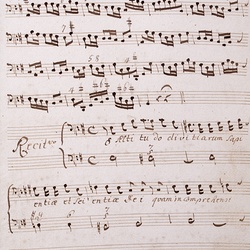 Recit:
O Alti tu do divitiarum Sapi
entiæ et Sci entiæ De i quam incomprehensi